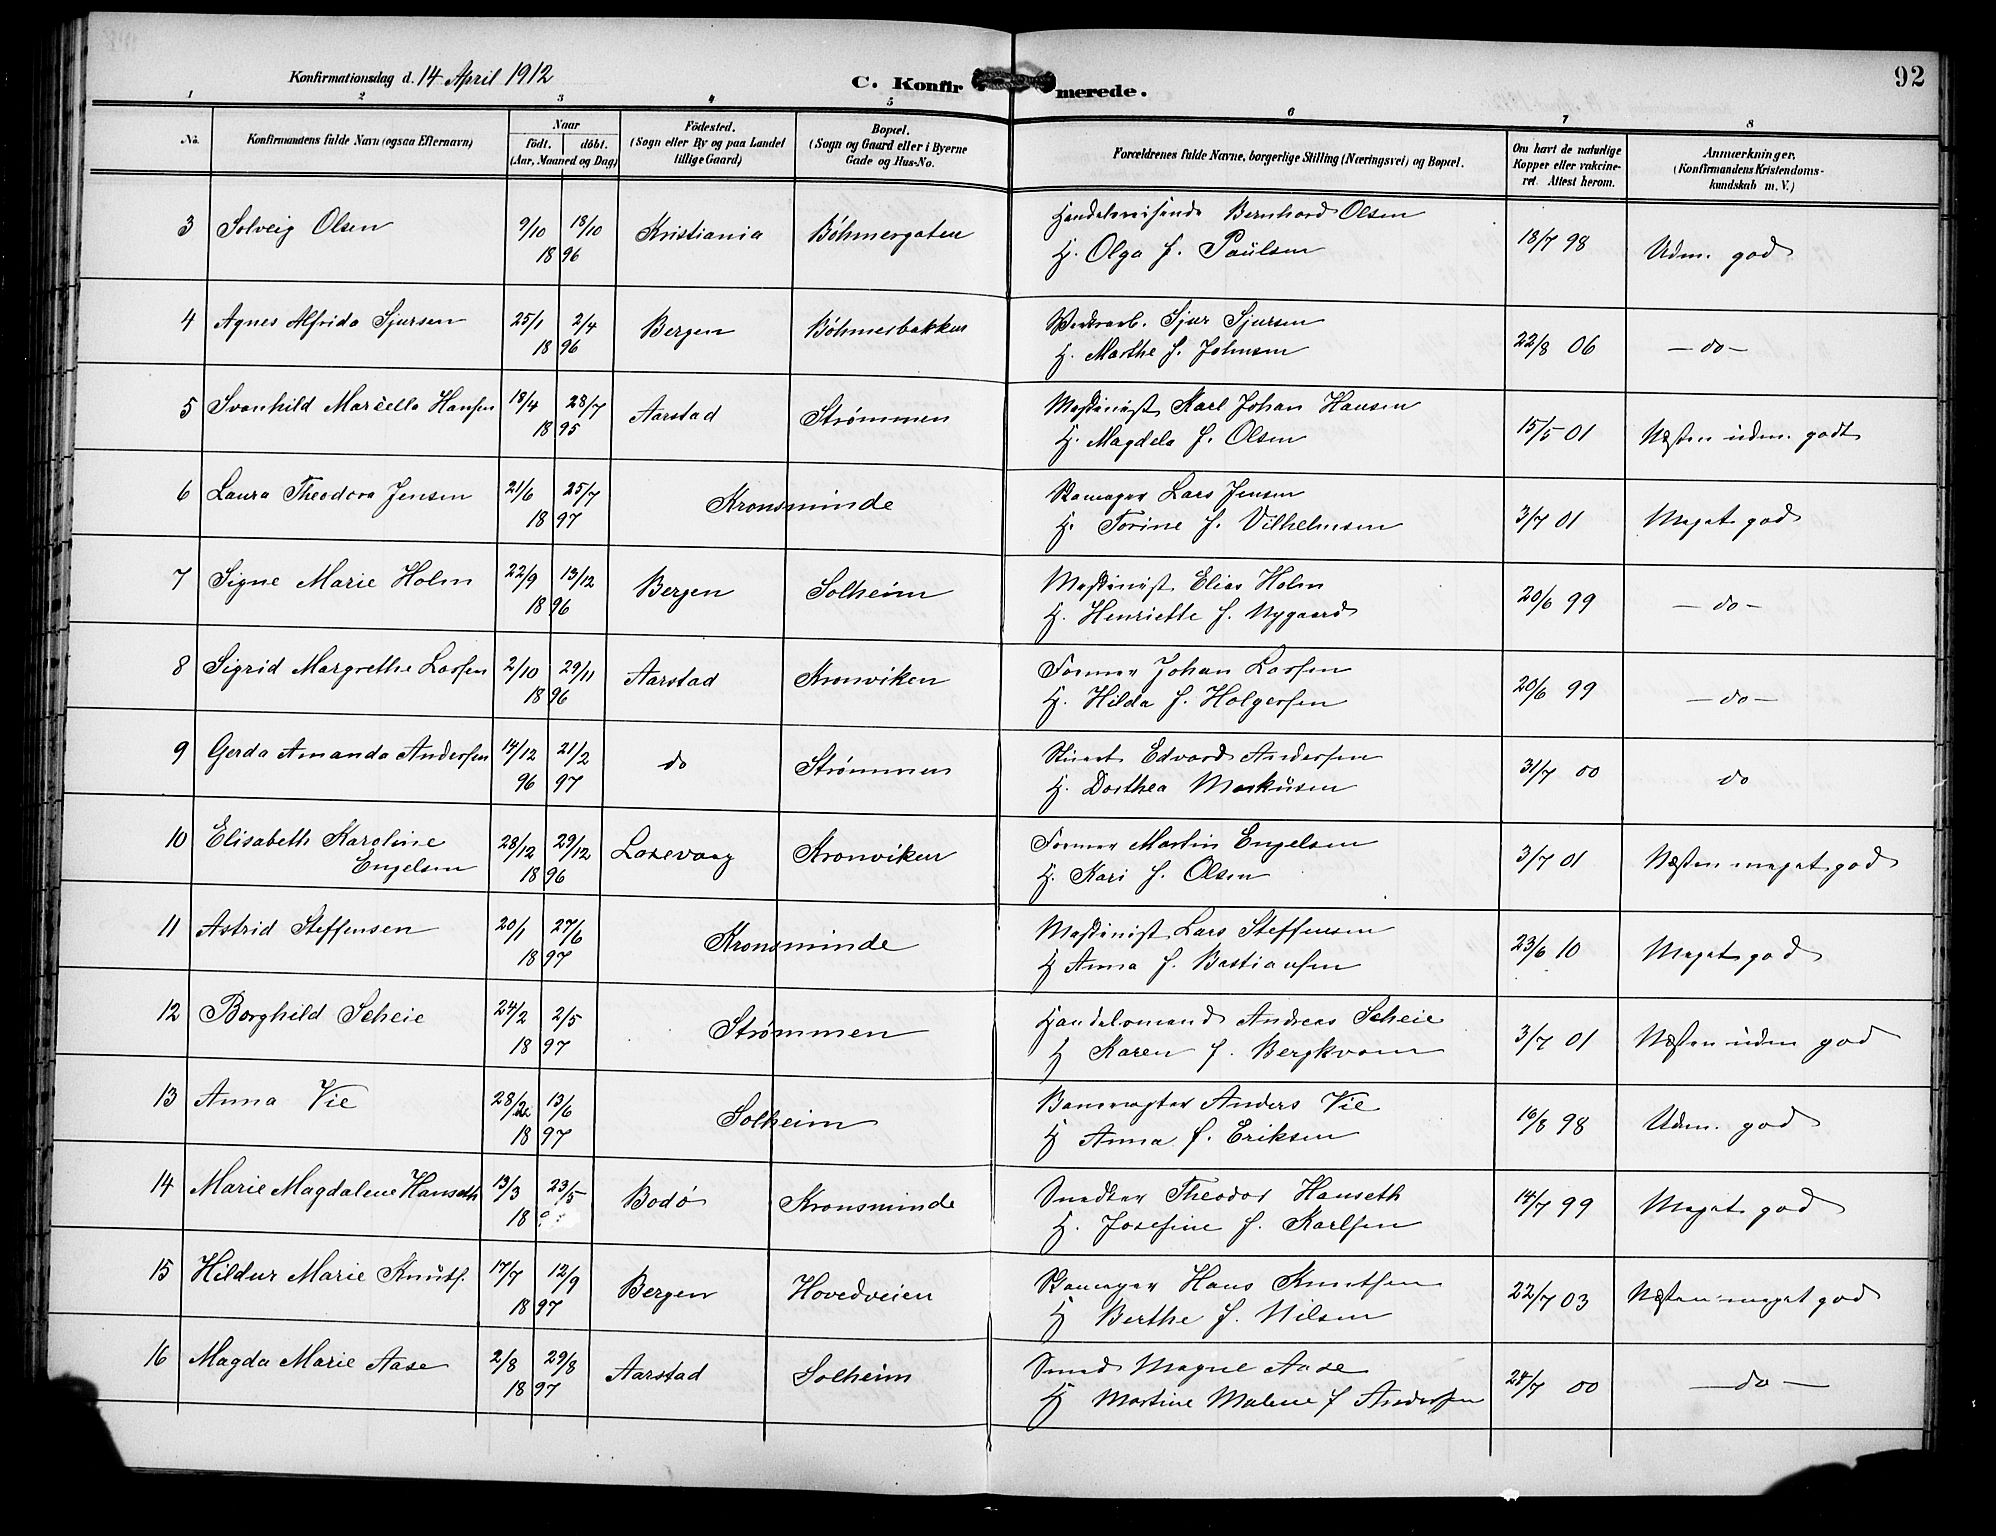 92
Konfirmationsdag d. 14 April 1912
C. Konfirmerede.
1 2 3 4 5 6 7 8
No. Konfirmandens fulde Navn (ogsaa Efternavn) Naar födt. döbt. (Aar, Maaned og Dag) Födested. (Sogn eller By og paa Landet tillige Gaard) Bopæl. (Sogn og Gaard eller i Byerne Gade og Hus-No. Forældrenes fulde Navne, borgerlige Stilling (Næringsvei) og Bopæl. Om havt de naturlige Kopper eller vakcineret. Attest herom. Anmærkninger. (Konfirmandens Kristendomskundskab m. V.)
3 Solveig Olsen 9/10 18/10 Kristiania Böhmergaten Handelsreisende Bernhard Olsen 18/7 98 Udm. god
18 96 H. Olga f. Paülsen
4 Agnes Alfrida Sjursen 25/1 2/4 Bergen Böhmerbakken Verksarb. Sjur Sjursen 22/8 06 - do -
18 96 H. Marthe f. Johnsen
5 Svanhild Marcella Hansen 18/4 28/7 Aarstad Strømmen Maskinist Karl Johan Hansen 15/5 01 Næsten udm. godt
18 95 H. Magdela f. Olsen
6 Laura Theodora Jensen 21/6 25/7 Kronsminde Skomager Lars Jensen 3/7 01 Meget god
18 97 H. Torine f. Vilhelmsen
7 Signe Marie Holm 22/9 13/12 Bergen Solheim Maskinist Elias Holm 20/6 99 - do -
18 96 H. Henriette f. Nygaard
8 Sigrid Margrethe Larsen 2/10 29/11 Aarstad Kronviken Former Johan Larsen 20/6 99 - do -
18 96 H. Hilda f. Holgersen
9 Gerda Amanda Andersen 14/12 21/2 do Strømmen Stuert Edvard Andersen 31/7 00 do
96 97 H. Dorthea Markusen
10 Elisabeth Karoline 28/12 29/12 Laxevaag Kronviken Former Martin Engelsen 3/7 01 Næsten meget god
Engelsen 18 96 H. Kari f. Olsen
11 Astrid Steffensen 20/1 27/6 Kronsminde Maskinist Lars Steffensen 23/6 10 Meget god
18 97 H Anna f. Bastiansen
12 Borghild Scheie 24/2 2/5 Strømmen Handelsmand Andreas Scheie 3/7 01 Næsten udm god
18 97 H Karen f. Bergkvam
13 Anna Vie 28/2 13/6 Solheim Banevogter Anders Vie 16/8 98 Udm. god
18 97 H Anna f. Eriksen
14 Marie Magdalene Hanseth 13/3 23/5 Bodø Kronsminde Snedker Theodor Hanseth 14/7 99 Meget god
18 H. Josefine f. Karlsen
15 Hildur Marie Knüts. 17/7 12/9 Bergen Hovedveien Skomager Hans Knutsen 22/7 03 Næsten meget god
18 97 H Berthe f. Nilsen
16 Magda Marie Aase 2/8 29/8 Aarstad Solheim Smed Magne Aase 28/7 00 - do -
18 97 H Martine Malene f Andersen